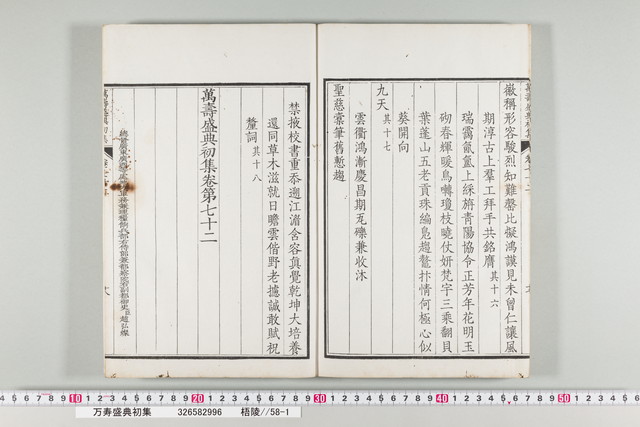 徽稱形容駿烈知難罄比擬鴻謨見未曾仁讓風
期淳古上羣工拜手共銘膺其十六
瑞靄氤氳上綵旂青陽協令正芳年花明玉
砌春輝暖鳥囀瓊枝曉仗妍梵字三乘翻貝
葉蓬山五老貢珠編鳧趨鼇抃情何極心似
葵開向
九天其十七
雲衢鴻漸慶昌期瓦礫兼收沐
聖慈橐筆舊慙趨
禁掖校書重忝邇江湄含容眞覺乾坤大培養
還同草木滋就日瞻雲偕野老攄誠敢賦祝
釐詞其十八
萬壽盛典初集卷第七十二
萬壽盛典初集
10 20 30 40 50 60
万寿盛典初集 326582996 梧陵//58-1